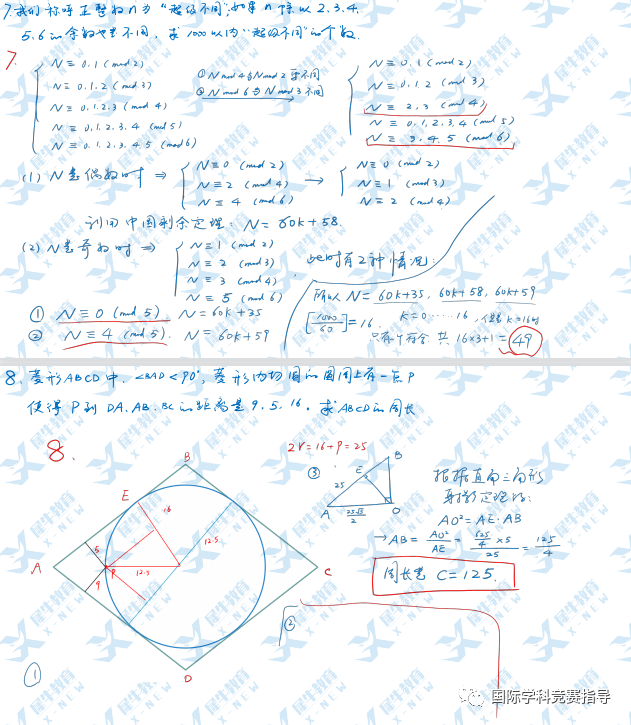 7. 我们称呼正整数n为“超级不同”, 如果n除以2.3.4.
5.6的余数也不同, 求1000以内“超级不同”的个数.
7.
N≡0.1 (mod 2)
N≡0.1.2 (mod 3)
N≡0.1.2.3 (mod 4)
N≡0.1.2.3.4 (mod 5)
N≡0.1.2.3.4.5 (mod 6)
① N mod 4与N mod 2 要不同
② N mod 6与N mod 3 不同
N≡0.1 (mod 2)
N≡0.1.2 (mod 3)
N≡2.3 (mod 4)
N≡0.1.2.3.4 (mod 5)
N≡3.4.5 (mod 6)
(1) N是偶数时 ⇒
N≡0 (mod 2)
N≡2 (mod 4)
N≡4 (mod 6)
→
N≡0 (mod 2)
N≡1 (mod 3)
N=2 (mod 4)
利用中国剩余定理: N=60k+58.
(2) N是奇数时 ⇒
N≡1 (mod 2)
N≡2 (mod 3)
N≡3 (mod 4)
N≡5 (mod 6)
此时有2种情况:
① N≡0 (mod 5) N=60k+35
② N≡4 (mod 5). N=60k+59
所以N=60k+35, 60k+58, 60k+59
[1000/60]=16, k=0······16, 但是k=16时
只有1个符合 共 16×3+1=49
8. 菱形ABCD中, ∠BAD<90°, 菱形内切圆的圆周上有一点P
使得P到DA.AB.BC的距离是9.5.16, 求ABCD的周长
8.
2r=16+9=25
B
E
16
12.5
5
A
P
12.5
9
C
D
①
③
B
E
25
A
O
根据直角三角形
射影定理得:
AO²=AE·AB
→AB=AO²/AE=(625/4×5)/25=125/4
周长是 C=125.
②
国际学科竞赛指导
犀牛教育
X-NEW